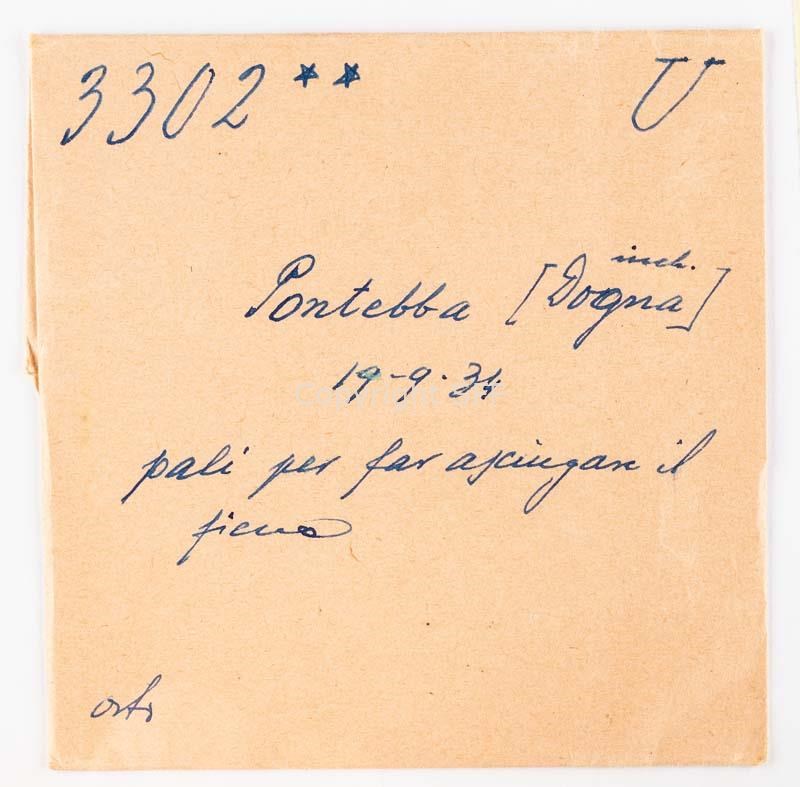 3302 ** U
inch.
Pontebba [Dogna]
19-9-31
pali per far asciugare il
fieno
orto